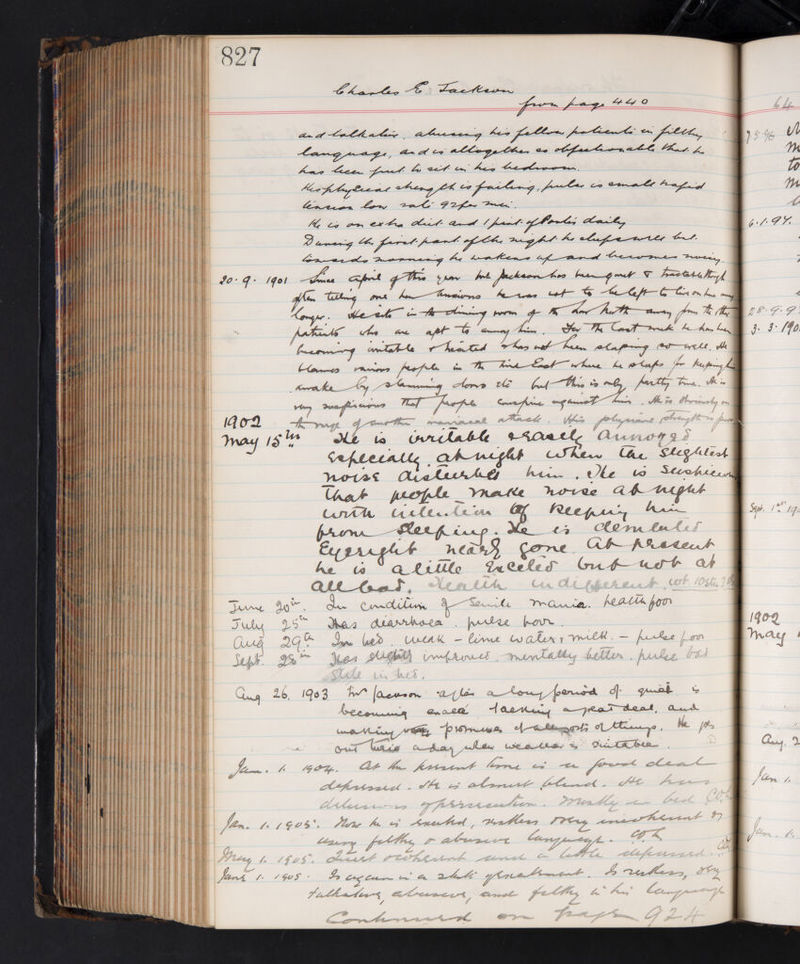 827
Charles E. Jackson
from page 440
and talkative, abusing his fellow patients in filthy
language, and is altogether so objectionable that he
has been put to sit in his bedroom.
His physical strength is failing, pulse is small rapid
tension low rate 92 per min.
He is on extra diet and 1 pint of Porter daily
During the first part of the night he sleeps well but
towards morning he wakens up and becomes noisy.
20. 9. 1901 Since April of this year Mr Jackson has been quiet & tractable though
often telling one how anxious he was not to be left to live on his any
longer. He sits in the dining room of the away from the other
patients who are apt to annoy him. For the last week he has been
becoming irritable & heated & has not been sleeping so well. He
blames various people in the East where he sleeps for keeping him
awake by slamming doors etc but this is only partly true. He is
very suspicious that people conspire against him. He is obviously on
the verge of another maniacal attack. His physical strength is poor
1902
May 15th He is irritable & easily annoyed
especially at night when the slightest
noise disturbs him. He is suspicious
that people make noise at night
with intention of keeping him
from sleeping. He is demented
Eyesight nearly gone. At present
he is a little excited but not at
all bad. Health indifferent
June 20th. In condition of senile mania. health poor
July 25th Has diarrhoea. pulse poor.
Aug 29th In bed. weak - lime water & milk. - pulse poor
Sept. 28th Has slightly improved. mentally better. pulse bad
Still in bed.
Aug 26. 1903 Mr Jackson after a long period of quiet is
becoming talking a great deal, and
making promises of all sorts of things. He gets
out twice a day when weather is suitable.
Jan. 1. 1904. At the present time is a good deal
depressed. He is almost blind. He has
delusions of persecution. Mostly in bed
Jan. 1. 1905. Now he is excited, restless very incoherent &
using filthy & abusive language.
May 1. 1905. Quiet and a little depressed.
June 1. 1905. Is again in a state of excitement. Is restless, very
talkative, abusive, and filthy in his language
Continued on page 924
64
6.1.97.
28.9.9
3. 3. 190
Sept. 1st 19
1902
May
Aug. 2
Jan 1.
Jan. 1.